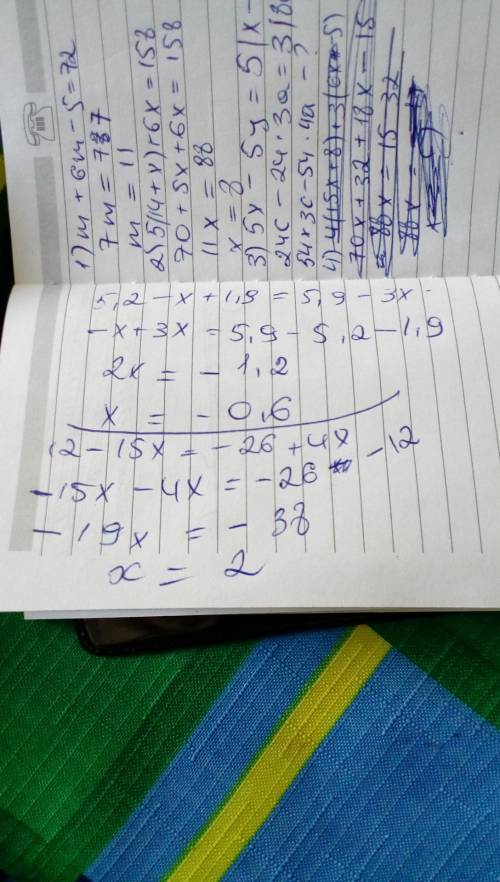 1) m + 6m - 5 = 72
7m = 77
m = 11
2) 5(14 + x) + 6x = 158
70 + 5x + 6x = 158
11x = 88
x = 8
3) 5x - 5y = 5(x -
24c - 24 · 3a = 3(8c
54x 3c - 54 · 4a - ?
4) 4(15x + 8) + 3(6x - 5)
70x + 32 + 18x - 15
88x = 15 - 32
88x =
5,2 - x + 1,9 = 5,9 - 3x
-x + 3x = 5,9 - 5,2 - 1,9
2x = - 1,2
x = - 0,6
12 - 15x = - 26 + 4x
-15x - 4x = -26 - 12
-19x = - 38
x = 2